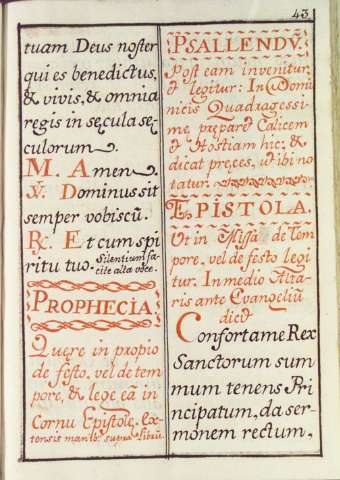 43
tuam Deus noster
qui es benedictus,
& vivis, & omnia
regis in sęcula sę
culorum.
M. Amen
V. Dominus sit
semper vobiscũ.
R. Et cum spi
ritu tuo. Silentium fa
cite alta voce.
PROPHECIA
Quęre in propio
de festo, vel de tem
pore, & lege eã in
Cornu Epistolę, ex-
tensis manib. supra Librũ
PSALLENDŨ.
Post eam invenitur,
& legitur: In Domi
nicis Quadragessi
mę pręparet Calicem
& Hostiam hic: &
dicat pręces, ut ibi no
tatur.
EPISTOLA.
Ut in Missa de tem
pore, vel de festo legi
tur. In medio Alta-
ris ante Evangeliũ
dicit
Conforta me Rex
Sanctorum sum
mum tenens Prin
cipatum, da ser-
monem rectum,